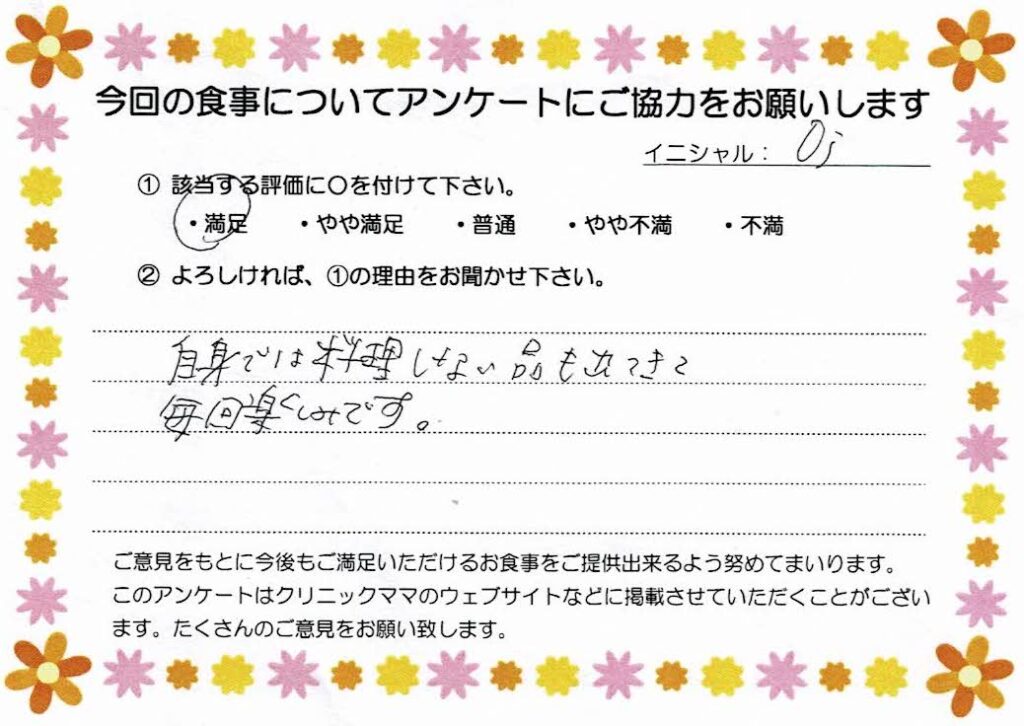 今回の食事についてアンケートにご協力をお願いします
イニシャル： Oj
① 該当する評価に〇を付けて下さい。
・満足 ・やや満足 ・普通 ・やや不満 ・不満
② よろしければ、①の理由をお聞かせ下さい。
自身では料理しない品も出てきて
毎回楽しみです。
ご意見をもとに今後もご満足いただけるお食事をご提供出来るよう努めてまいります。
このアンケートはクリニックママのウェブサイトなどに掲載させていただくことがござい
ます。たくさんのご意見をお願い致します。